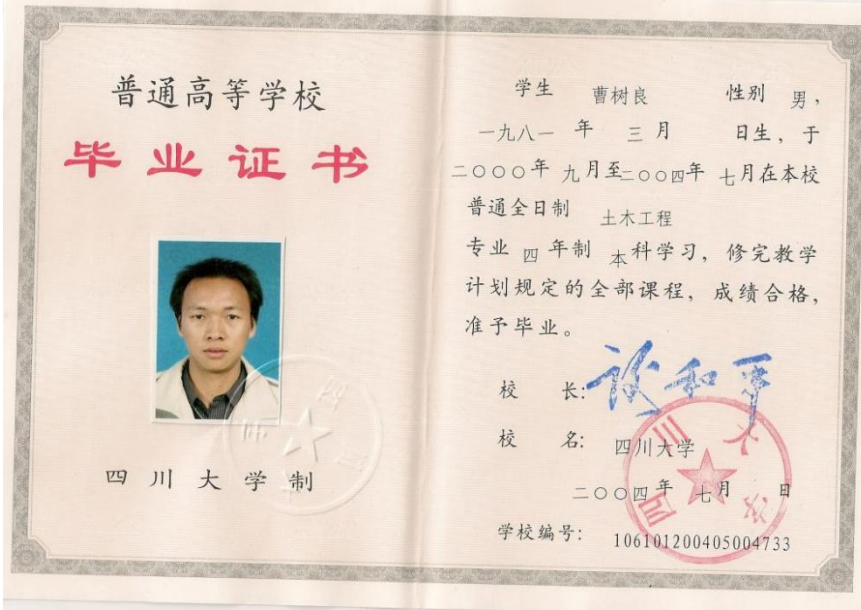 普通高等学校
毕业证书
四川大学制
学生 曹树良 性别 男，
一九八一 年 三 月 日生，于
二〇〇〇年 九月至二〇〇四年 七月在本校
普通全日制 土木工程
专业 四 年制 本科学习，修完教学
计划规定的全部课程，成绩合格，
准予毕业。
校 长：谈和平
校 名：四川大学
二〇〇四年 七月 日
学校编号：106101200405004733
四川大学